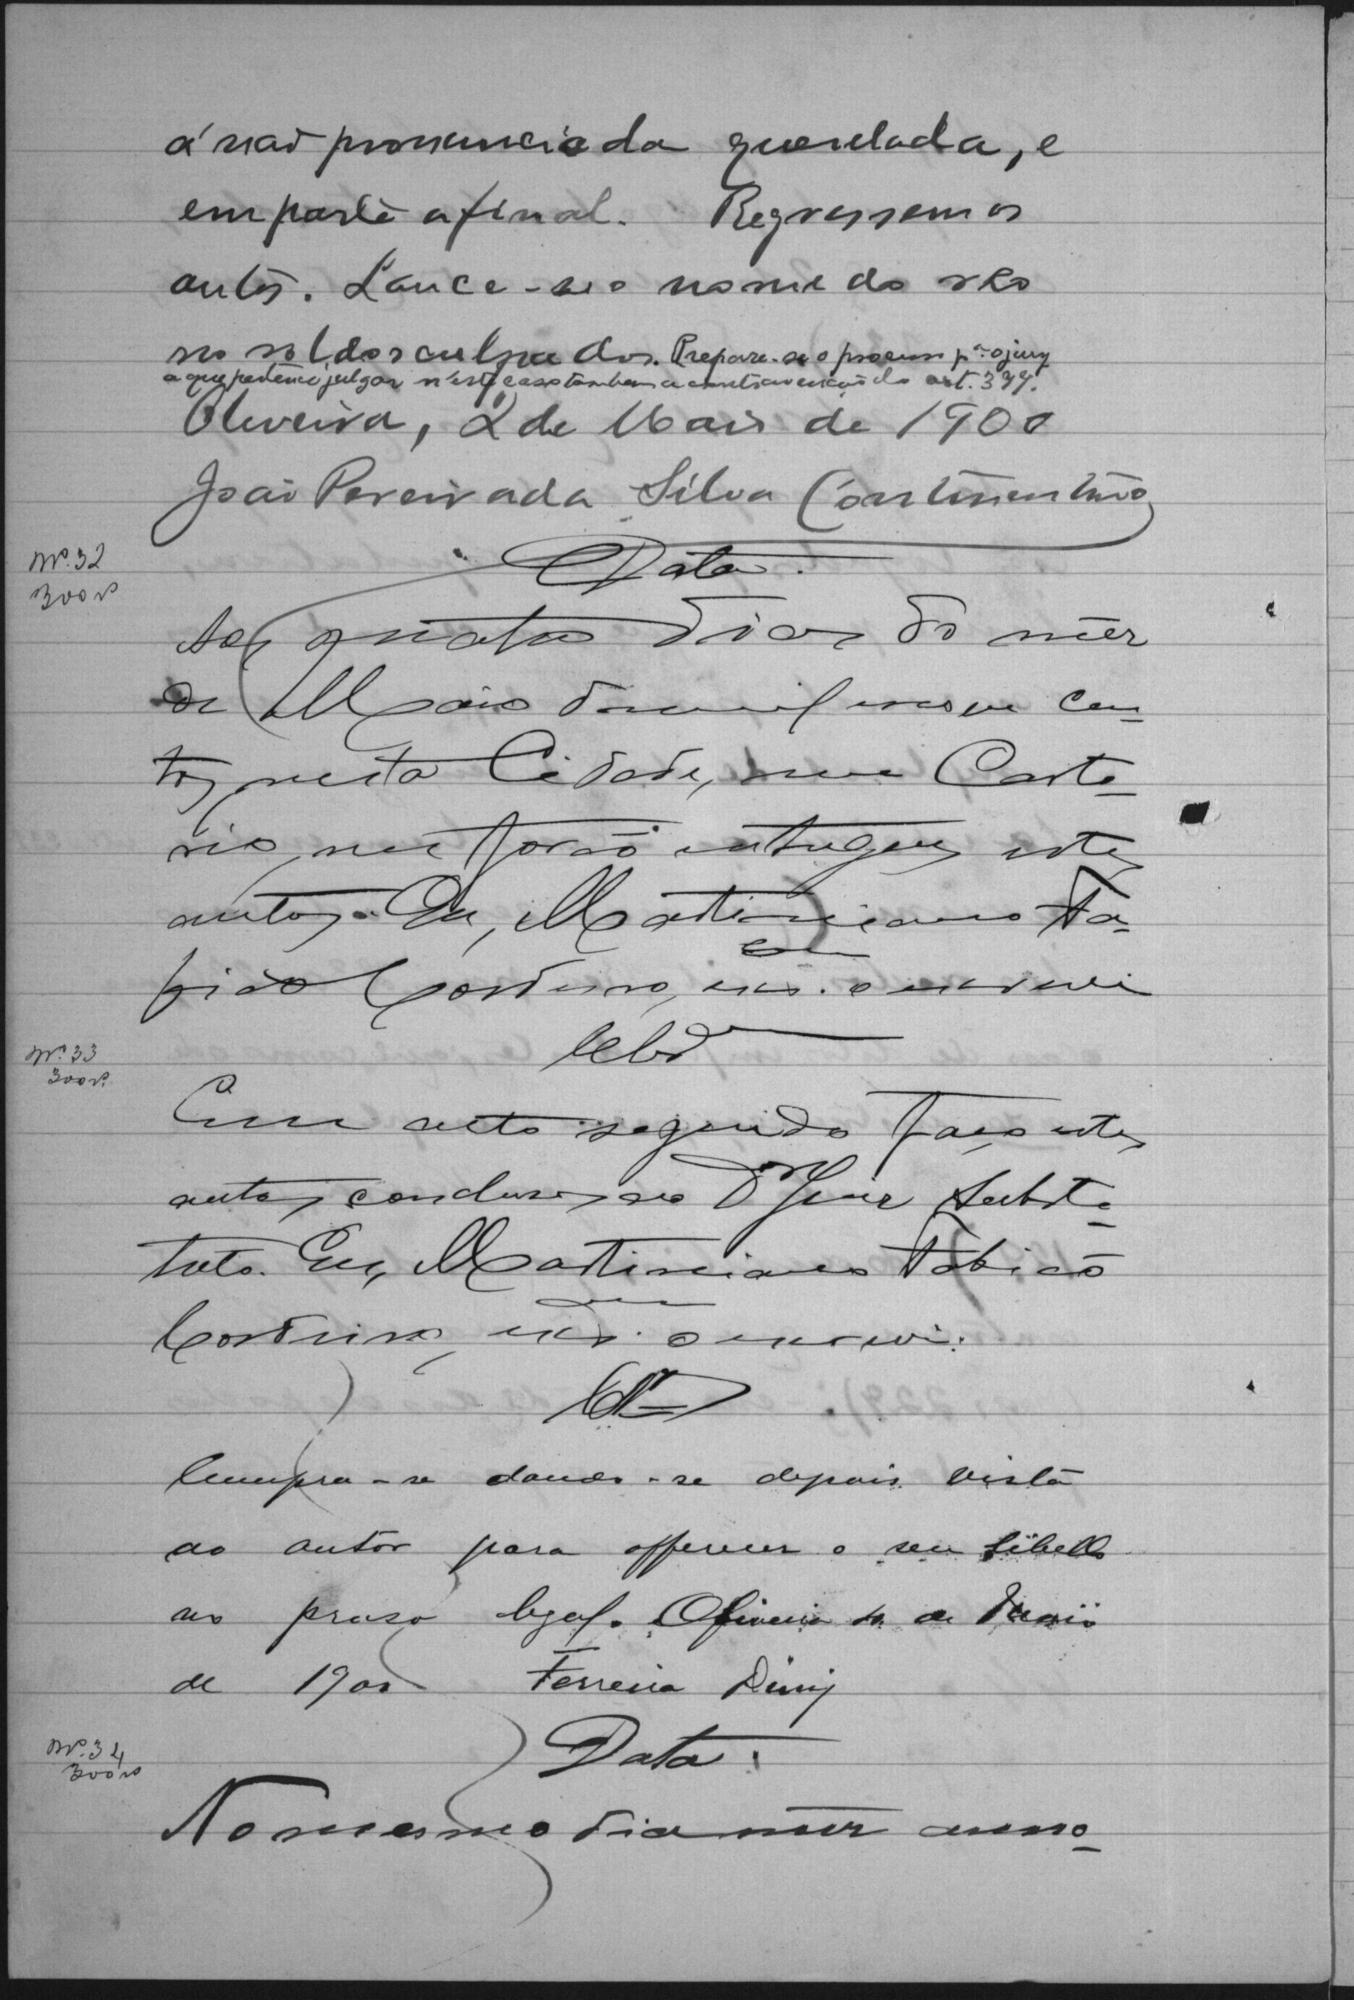 á não pronunciada querelada, e
em parte afinal. Regressem os
autos. Lance-se o nome do réo
no rol dos culpados. Prepare-se o processo pª o jury
a que pertence julgar n'este caso tambem a contravenção do art. 377.
Oliveira, 2 de Maio de 1900
João Pereira da Silva Continentino
Nº. 32
300 rs
Data.
Aos quatro dias do mez
de Maio de mil nove cen-
tos, nesta Cidade, meu Carto-
rio, me forão entregues estes
autos. Eu, Martiniano Ta-
bião Cordeiro, esc. o escrevi
Nº. 33
300 rs.
Clsº
Em acto seguido faço estes
autos conclusos ao Dr Juiz Substi-
tuto. Eu, Martiniano Tabião
Cordeiro, esc. o escrevi.
Clsº
Cumpra-se dando-se depois vista
ao autor para offerecer o seu libello
no praso legal. Oliveira 4 de Maio
de 1900 Ferreira Diniz
Nº. 34
300 rs
Data.
No mesmo dia mez anno